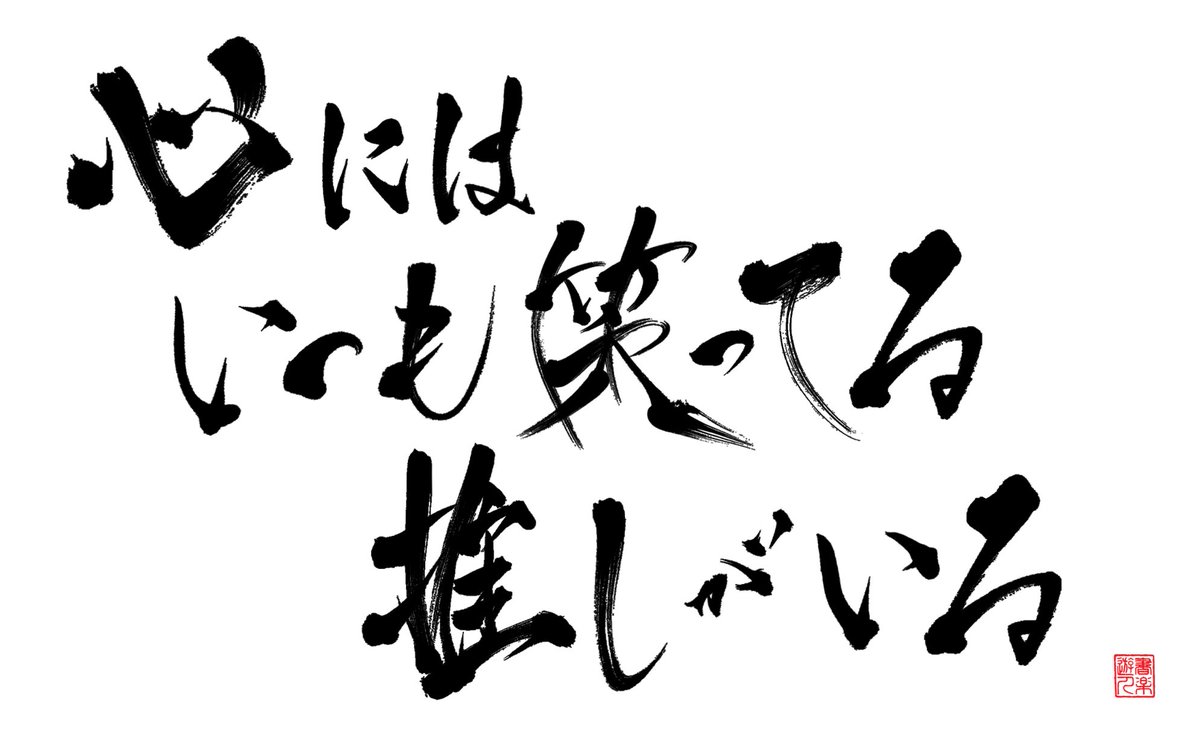 心には
いつも笑ってる
推しがいる
書楽
遊人